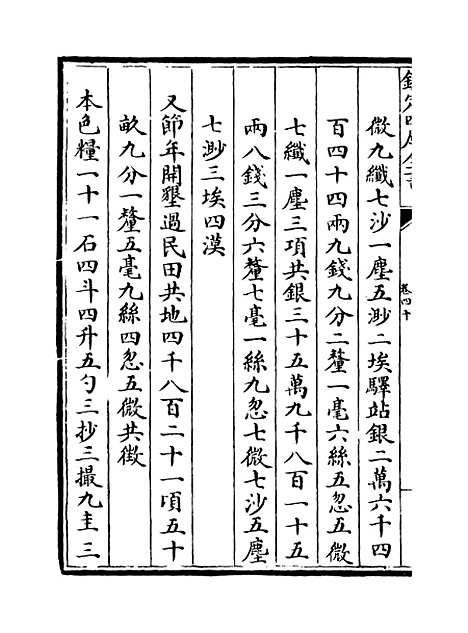 欽定四庫全書
卷四十
微九纖七沙一塵五渺二埃驛站銀二萬六千四
百四十四兩九錢九分二釐一毫六絲五忽五微
七纖一塵三項共銀三十五萬九千八百一十五
兩八錢三分六釐七毫一絲九忽七微七沙五塵
七渺三埃四漠
又節年開墾過民田共地四千八百二十一項五十
畝九分一釐五毫九絲四忽五微共徴
本色糧一十一石四斗四升五勺三抄三撮九圭三